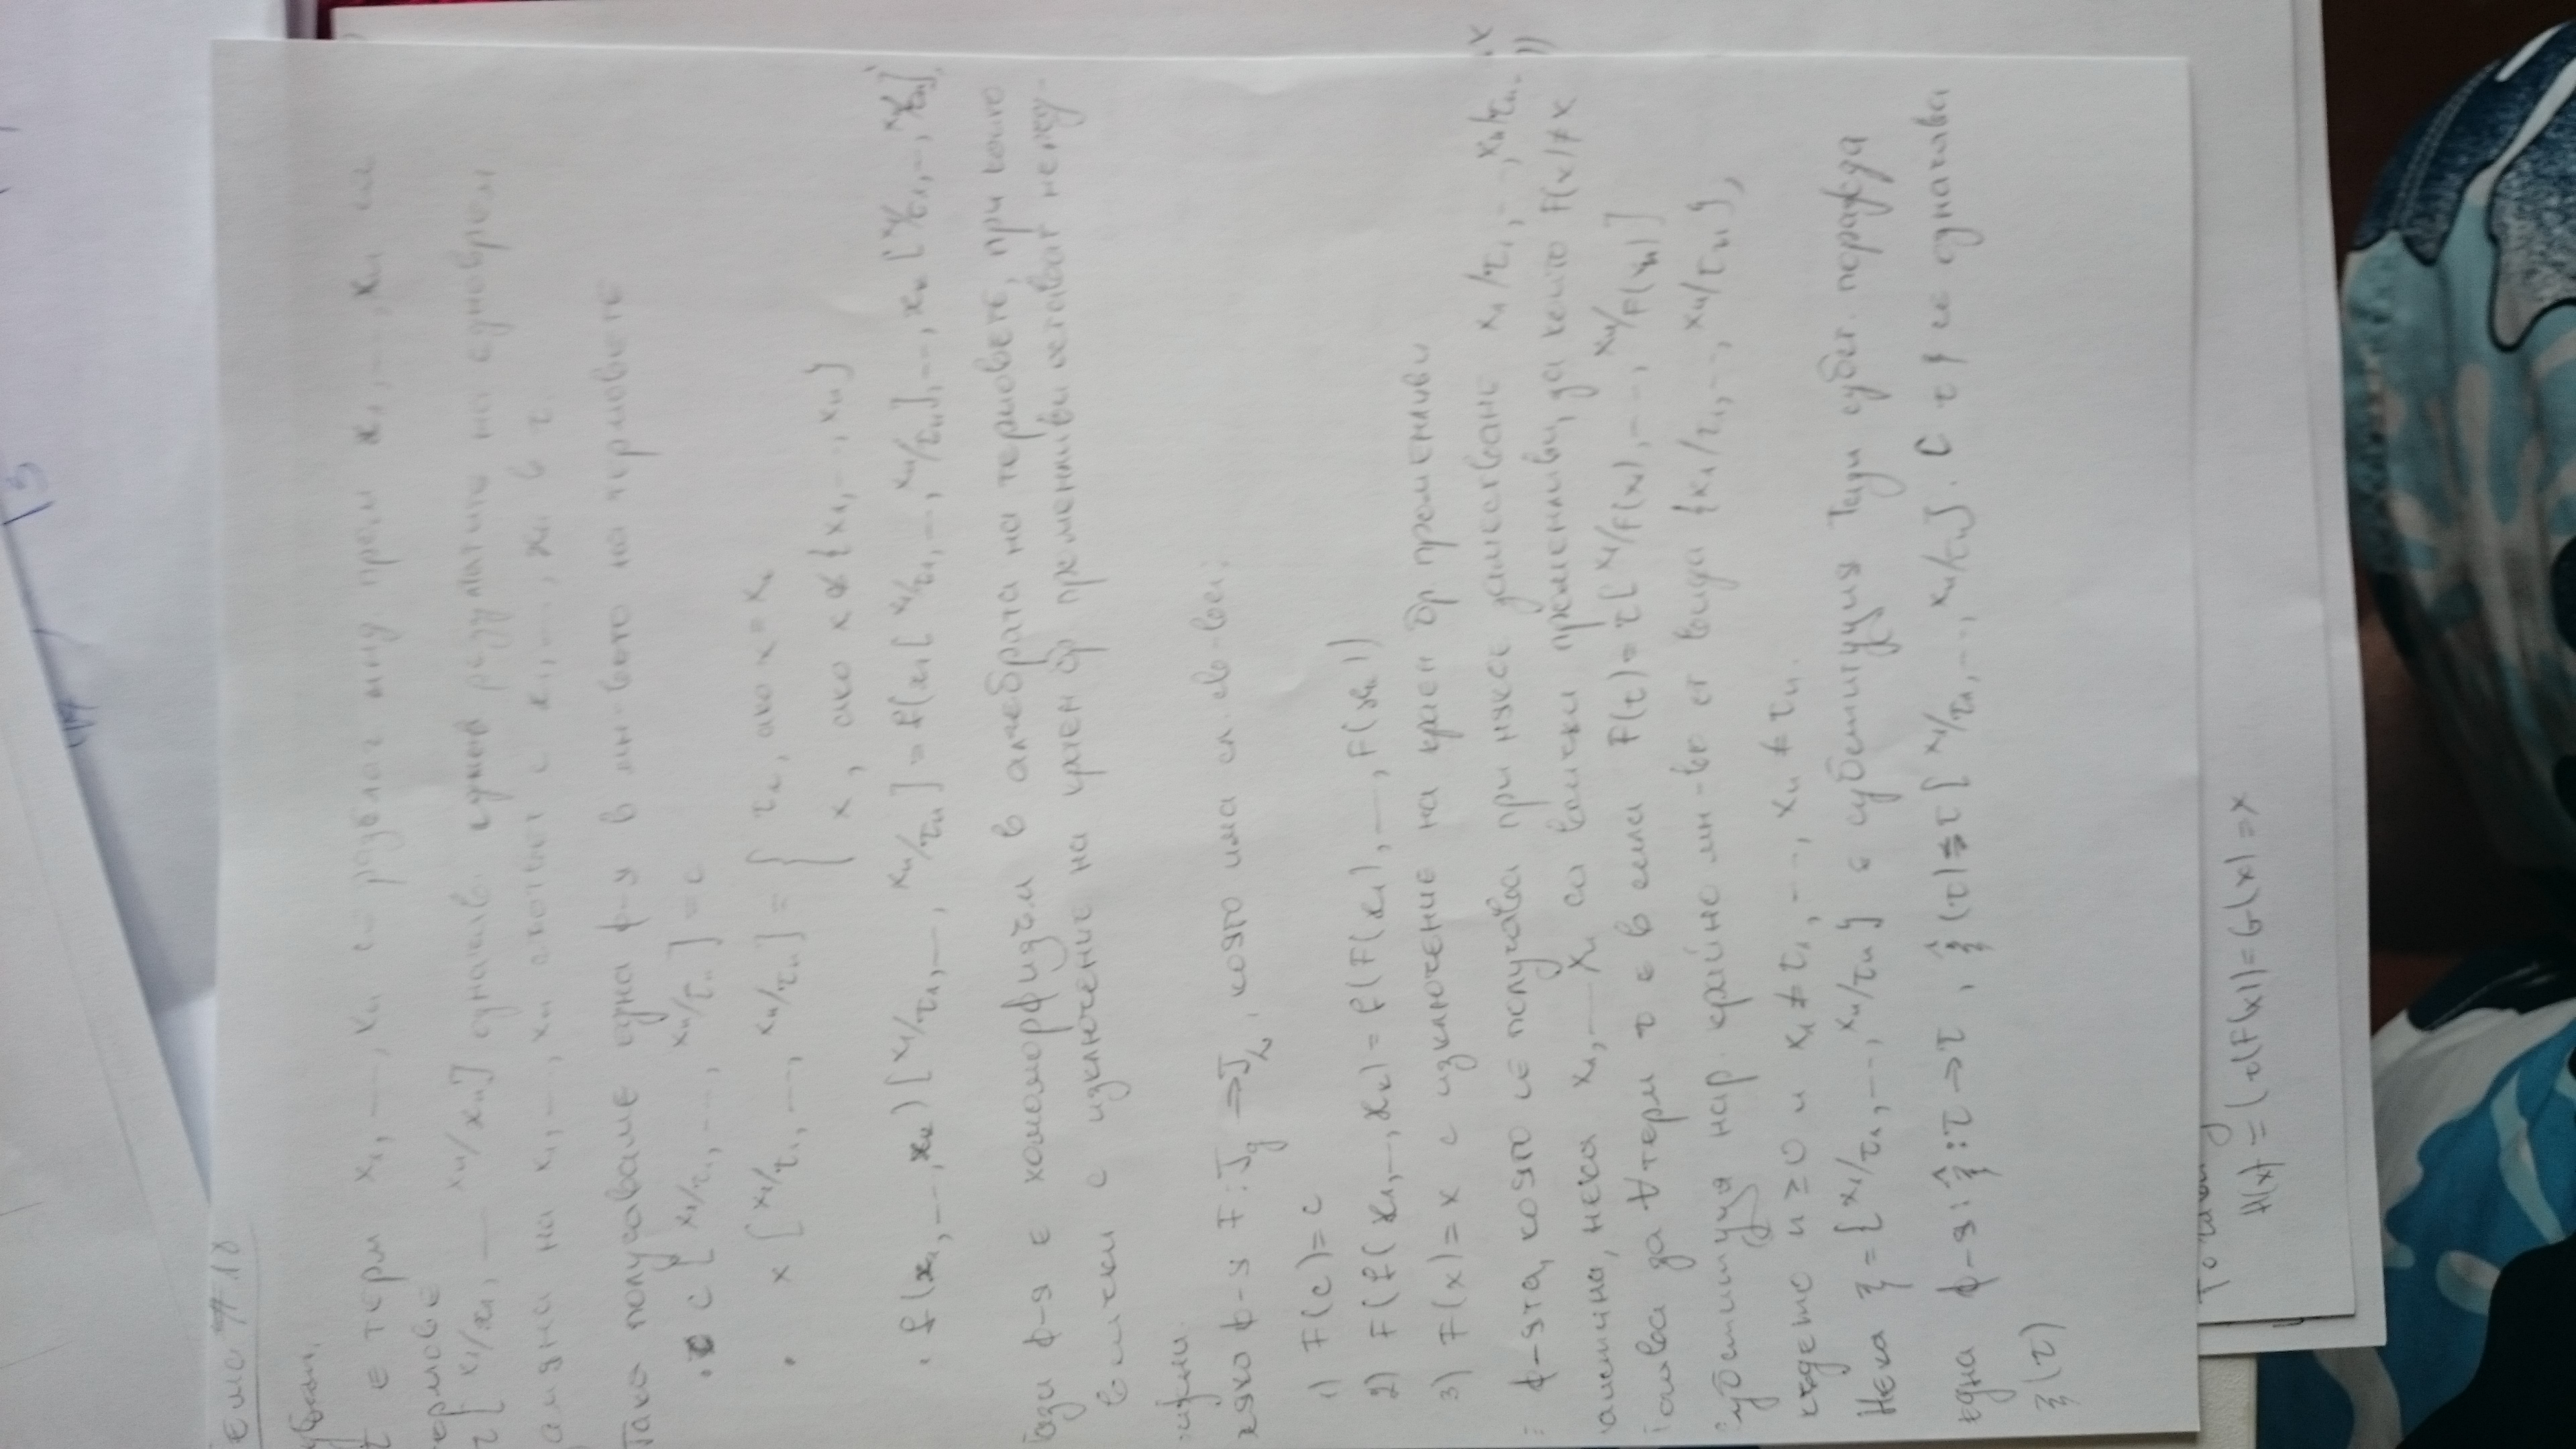 Тема #18
τ е терм x₁, …, xₙ са различ. инд. пром. x₁, …, xₙ са
термове
τ[x₁/x₁, … xₙ/xₙ] означав. резултата на едноврем.
замяна на x₁, …, xₙ с x₁, …, xₙ в τ.
Така получаваме една ф-я в мн-вото на термовете
• c[x₁/τ₁, …, xₙ/τₙ] = c
• x[x₁/τ₁, …, xₙ/τₙ] = { τᵢ, ако x = xᵢ
x, ако x ∉ {x₁, …, xₙ}
• f(x₁, …, xₖ)[x₁/τ₁, …, xₙ/τₙ] = f(x₁[x₁/τ₁, …, xₙ/τₙ], …, xₖ[x₁/τ₁, …, xₙ/τₙ])
Тази ф-я е хомоморфизъм в алгебрата на термовете, при която
всички с изключение на краен бр променливи остават непро-
всяка ф-я F: J → J, която има сл. св-ва:
1) F(c) = c
2) F(f(x₁, …, xₖ) = f(F(x₁), …, F(xₖ))
3) F(x) = x с изключение на краен бр. променливи
ф-ята, която се получава при някое заместване x₁/τ₁, …, xₙ/τₙ.
нека x₁, … xₙ са всички променливи, за които F(x) ≠ x
Тогава за ∀ терм τ е в сила F(τ) = τ[x₁/F(x₁), …, xₙ/F(xₙ)]
Субституция нар. крайно мн-во от вида {x₁/τ₁, …, xₙ/τₙ},
където n ≥ 0 и x₁ ≠ τ₁, …, xₙ ≠ τₙ.
Нека ξ = {x₁/τ₁, …, xₙ/τₙ} е субституция Тази субст. поражда
една ф-я: ξ̂: τ → τ, ξ̂(τ) = τ[x₁/τ₁, …, xₙ/τₙ]. С τξ се означава
ξ(τ)
H(x) = (τ(F(x)) = G(x) = x